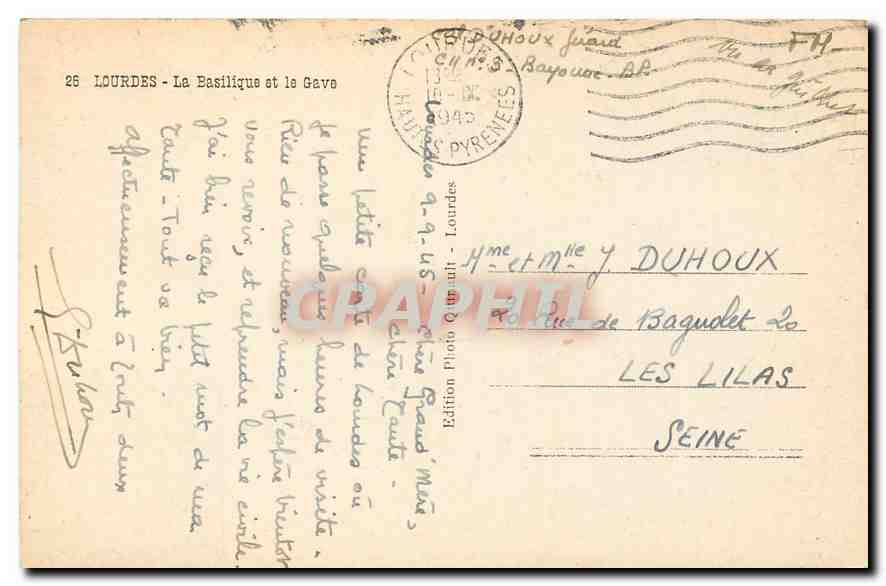 26 LOURDES - La Basilique et le Gave
DUHOUX Gérard
CM n° 5 Bayonne. BP.
FM
LOURDES
1945
HAUTES PYRENEES
Lourdes 9-9-45 - chère Grand' Mère,
chère Tante -
Une petite carte de Lourdes où
je passe quelques heures de visite -
Rien de nouveau, mais j'espère bientôt
vous revoir, et reprendre la vie civile.
J'ai bien reçu le petit mot de ma
Tante - Tout va bien.
affectueusement à toutes deux
G. Duhoux
Edition Photo - Lourdes
CPAPHIL
Mme et Mlle J. DUHOUX
20 Rue de Bagnolet 20
LES LILAS
SEINE